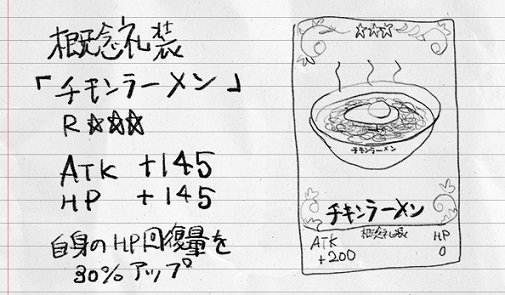 概念礼装
「チキンラーメン」
R ☆☆☆
ATK +145
HP +145
自身のHP回復量を
30%アップ
☆☆☆
チキンラーメン
チキンラーメン
概念礼装
ATK
+200
HP
0